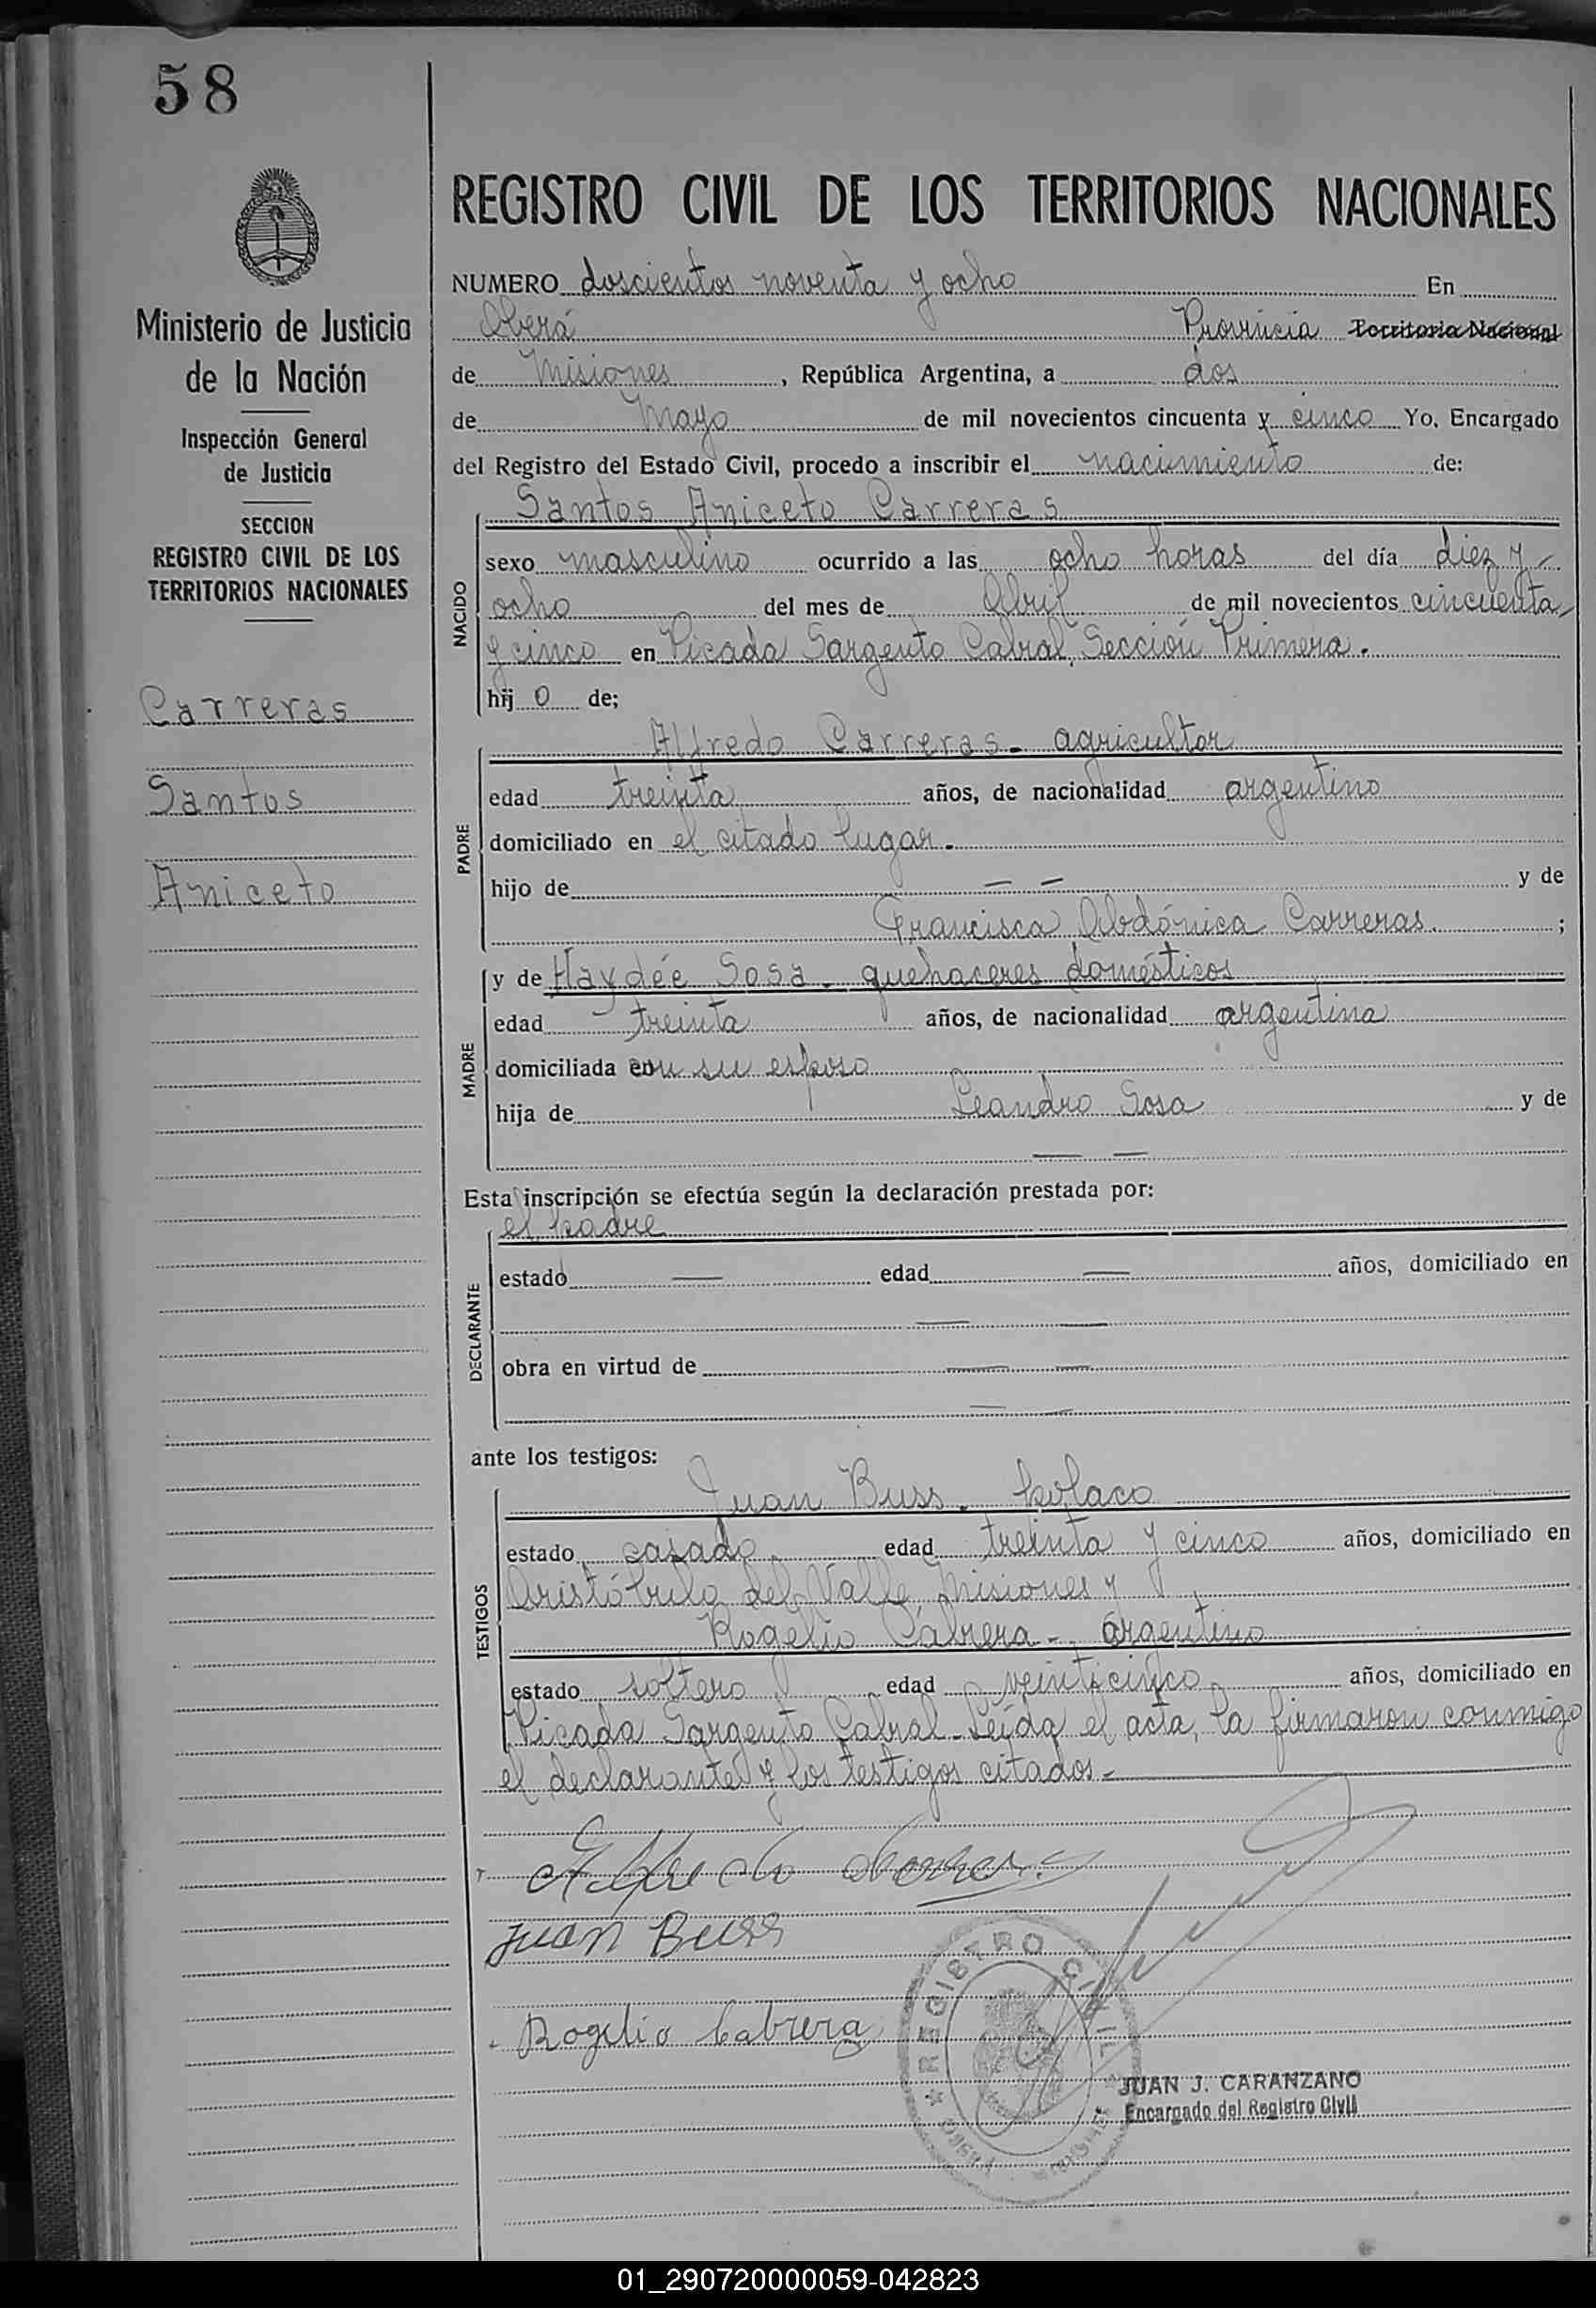 58
REGISTRO CIVIL DE LOS TERRITORIOS NACIONALES
Ministerio de Justicia
de la Nación
Inspección General
de Justicia
SECCION
REGISTRO CIVIL DE LOS
TERRITORIOS NACIONALES
Carreras
Santos
Aniceto
NUMERO doscientos noventa y ocho En
Oberá Provincia Territorio Nacional
de Misiones, República Argentina, a dos
de Mayo de mil novecientos cincuenta y cinco Yo, Encargado
del Registro del Estado Civil, procedo a inscribir el nacimiento de:
NACIDO
Santos Aniceto Carreras
sexo masculino ocurrido a las ocho horas del día diez y
ocho del mes de Abril de mil novecientos cincuenta
y cinco en Picada Sargento Cabral, Sección Primera.
hij o de;
PADRE
Alfredo Carreras - agricultor
edad treinta años, de nacionalidad argentino
domiciliado en el citado lugar.
hijo de — — y de
Francisca Abdónica Carreras ;
MADRE
y de Haydée Sosa - quehaceres domésticos
edad treinta años, de nacionalidad argentina
domiciliada con su esposo
hija de Leandro Sosa y de
— —
Esta inscripción se efectúa según la declaración prestada por:
DECLARANTE
el padre
estado — edad — años, domiciliado en
— —
obra en virtud de — —
— —
ante los testigos:
TESTIGOS
Juan Buss - polaco
estado casado edad treinta y cinco años, domiciliado en
Aristóbulo del Valle, Misiones y
Rogelio Cabrera - argentino
estado soltero edad veinticinco años, domiciliado en
Picada Sargento Cabral - Leída el acta, la firmaron conmigo
el declarante y los testigos citados -
Juan Buss
Rogelio Cabrera
REGISTRO CIVIL
JUAN J. CARANZANO
Encargado del Registro Civil
01_290720000059-042823